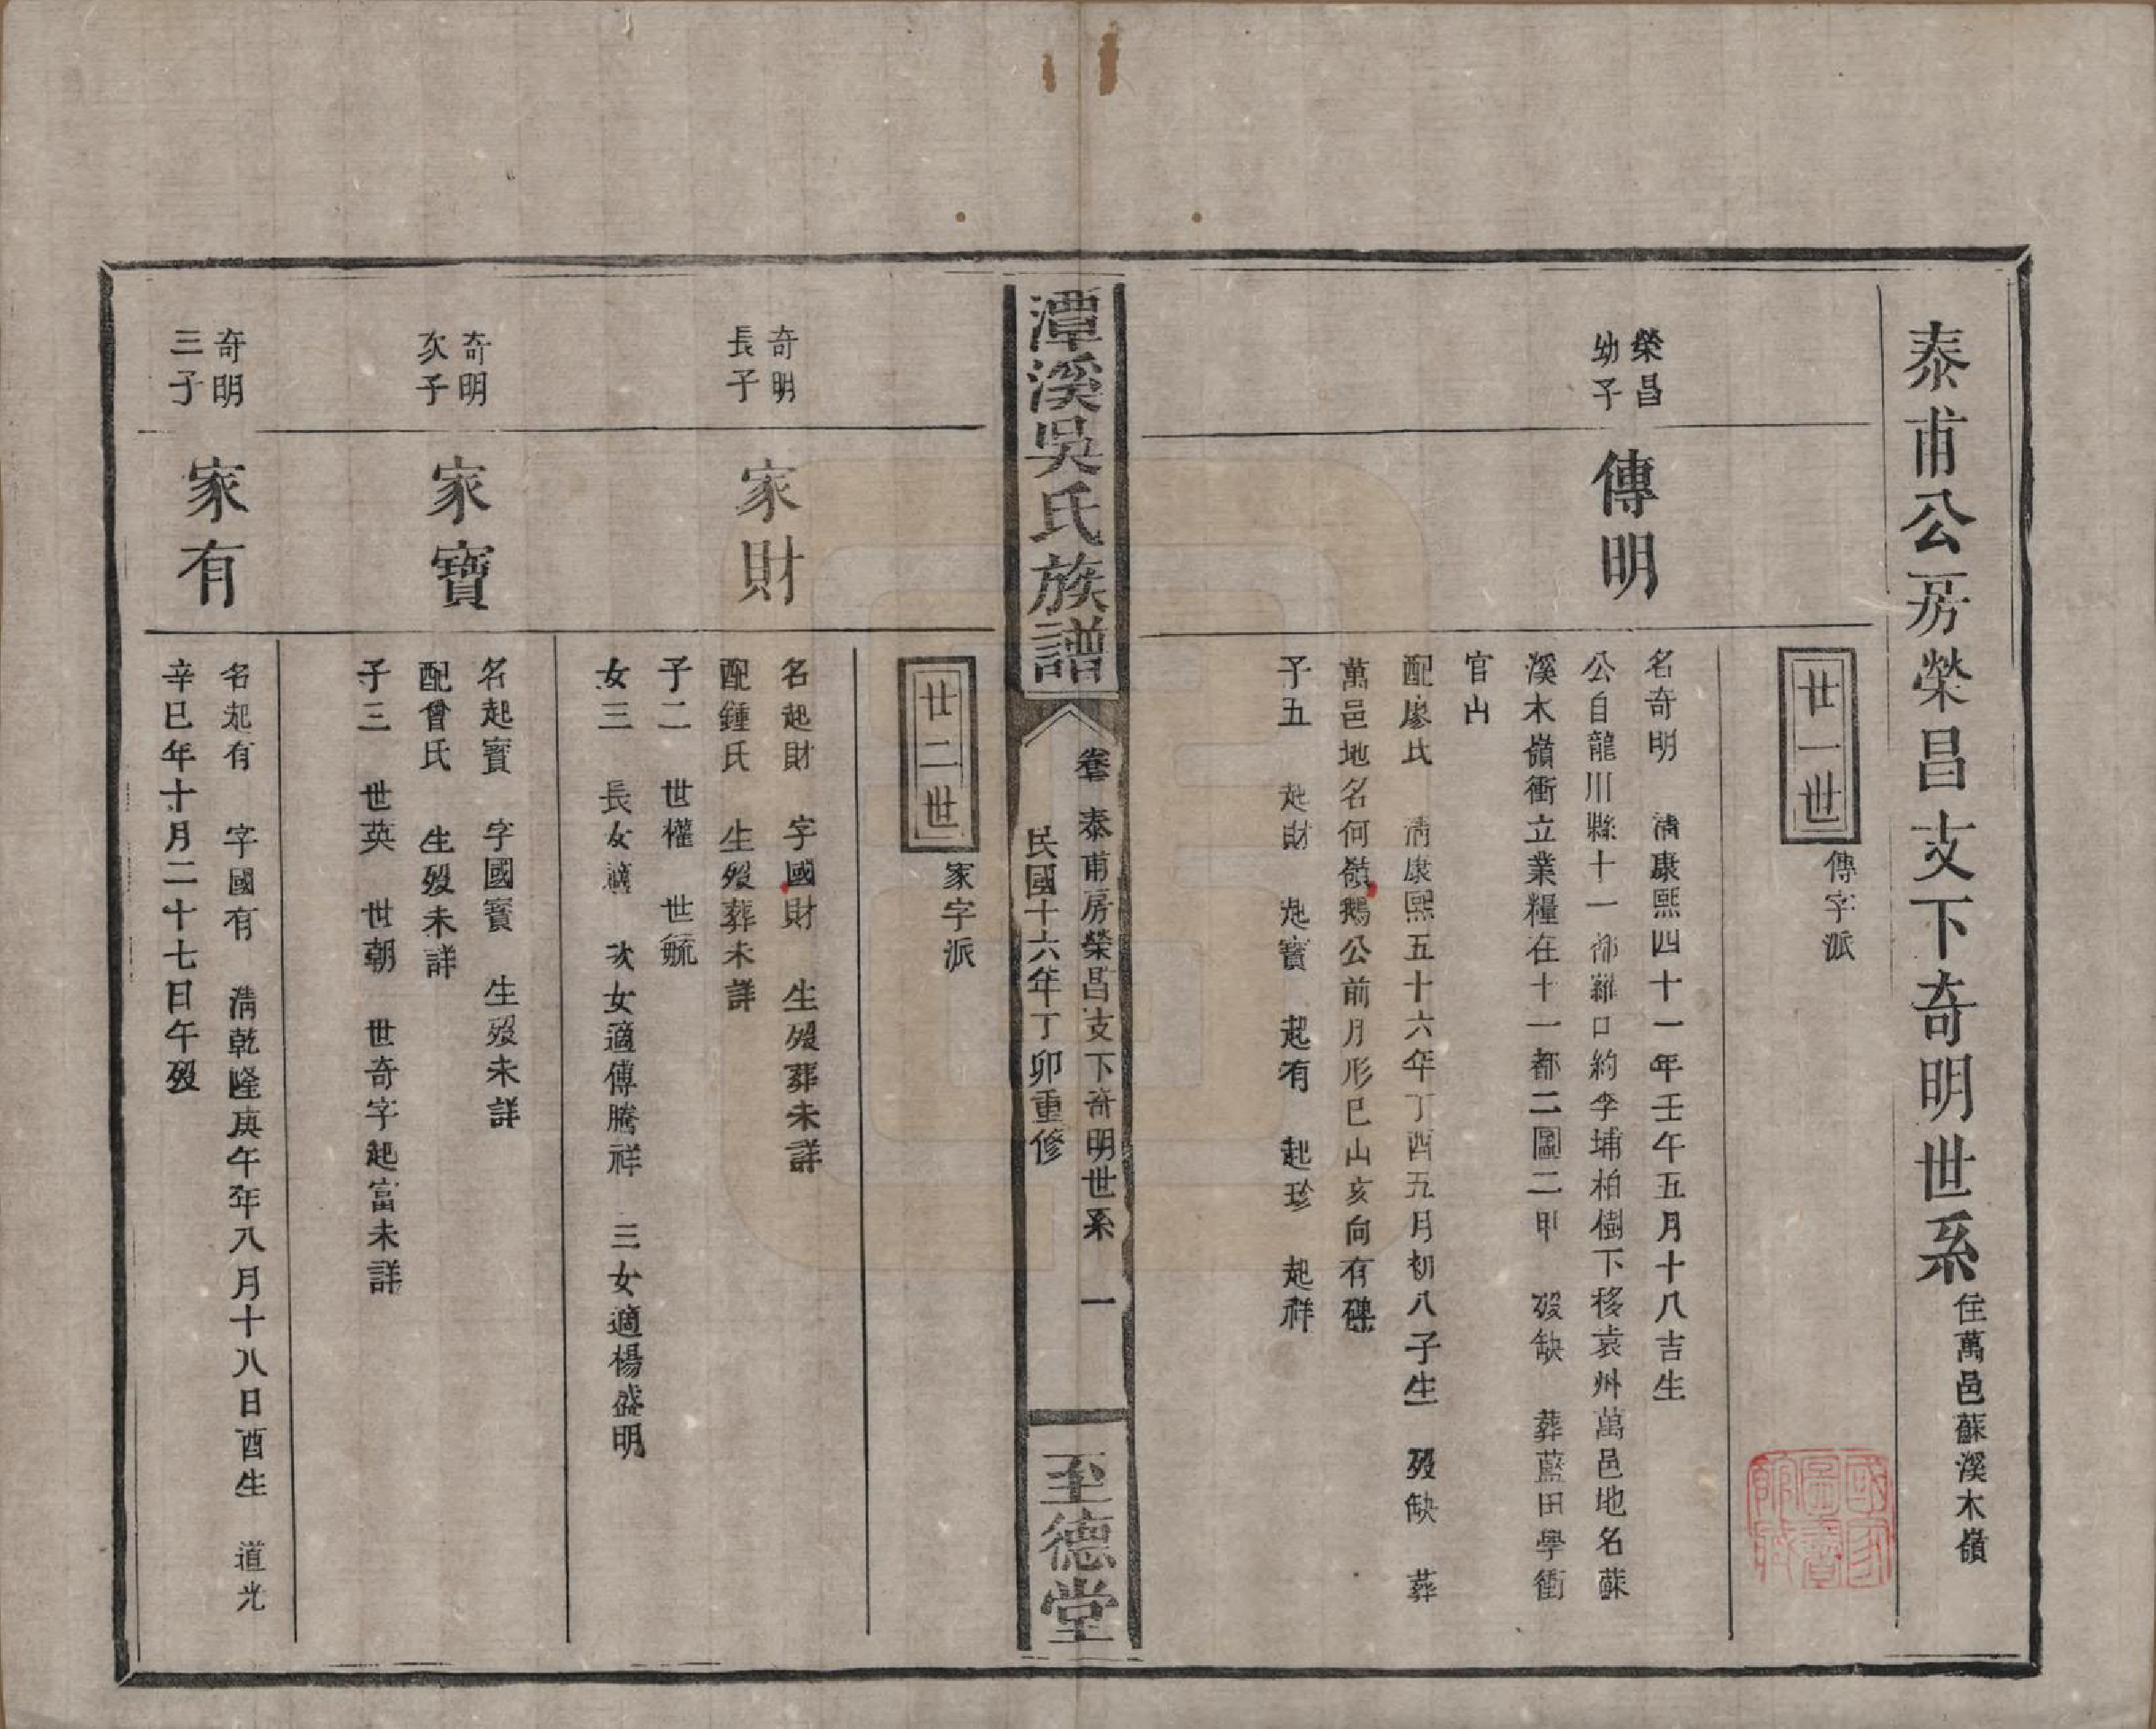 泰甫公房榮昌支下奇明世系 住萬邑蘇溪木嶺
廿一世 傳字派
榮昌
幼子
傳明
名奇明 清康熙四十一年壬午五月十八吉生
公自龍川縣十一都羅口約李埔柏樹下移袁州萬邑地名蘇
溪木嶺衝立業糧在十一都二圖二甲 歿缺 葬藍田學衝
官山
配廖氏 清康熙五十六年丁酉五月初八子生 歿缺 葬
萬邑地名何嶺鵝公前月形巳山亥向有碑
子五 起財 起寶 起有 起珍 起祥
潭溪吳氏族譜
卷 泰甫房榮昌支下奇明世系 一
民國十六年丁卯重修
至德堂
廿二世 家字派
奇明
長子
家財
名起財 字國財 生歿葬未詳
配鍾氏 生歿葬未詳
子二 世權 世毓
女三 長女 次女適傅騰祥 三女適楊盛明
奇明
次子
家寶
名起寶 字國寶 生歿未詳
配曾氏 生歿未詳
子三 世英 世朝 世奇字起富未詳
奇明
三子
家有
名起有 字國有 清乾隆庚午年八月十八日酉生 道光
辛巳年十月二十七日午歿